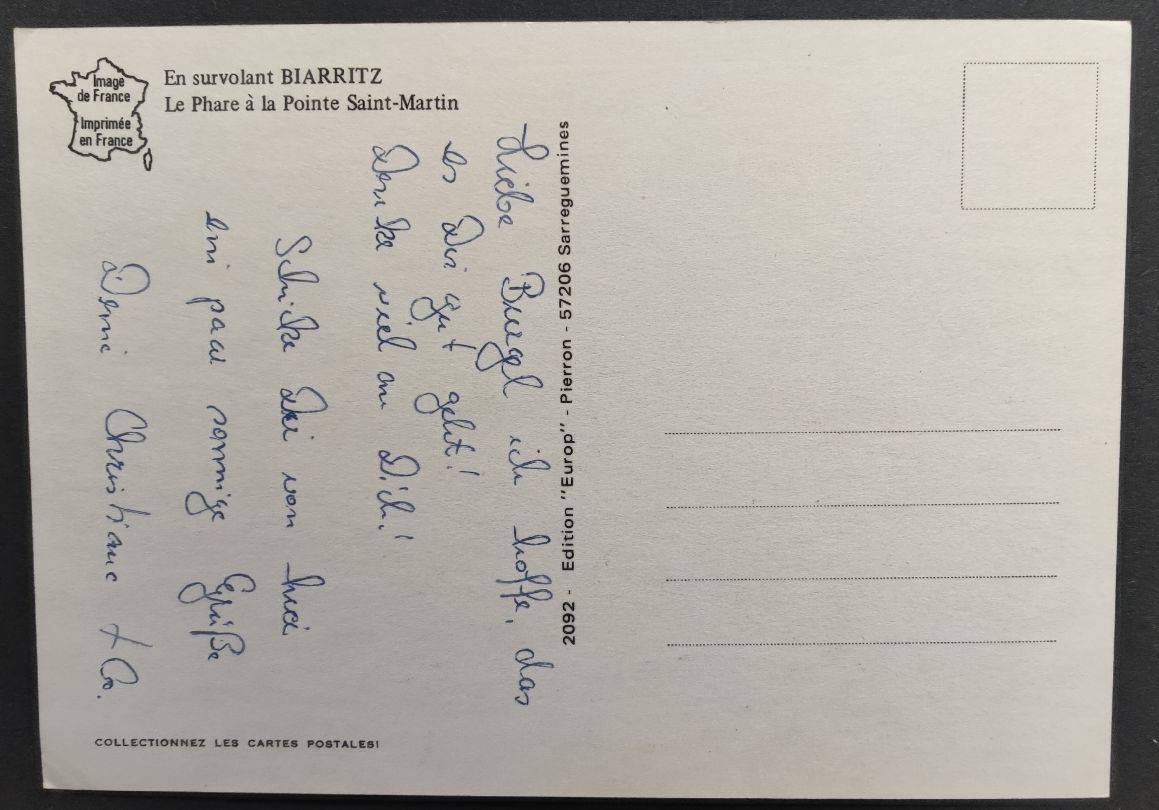 Image
de France
Imprimée
en France
En survolant BIARRITZ
Le Phare à la Pointe Saint-Martin
Liebe Burgel ich hoffe, das
es Dir gut geht!
Denke viel an Dich!
Schicke Dir von hier
ein paar sonnige Grüße
Deine Christiane + Co.
2092 - Edition "Europ" - Pierron - 57206 Sarreguemines
COLLECTIONNEZ LES CARTES POSTALES!